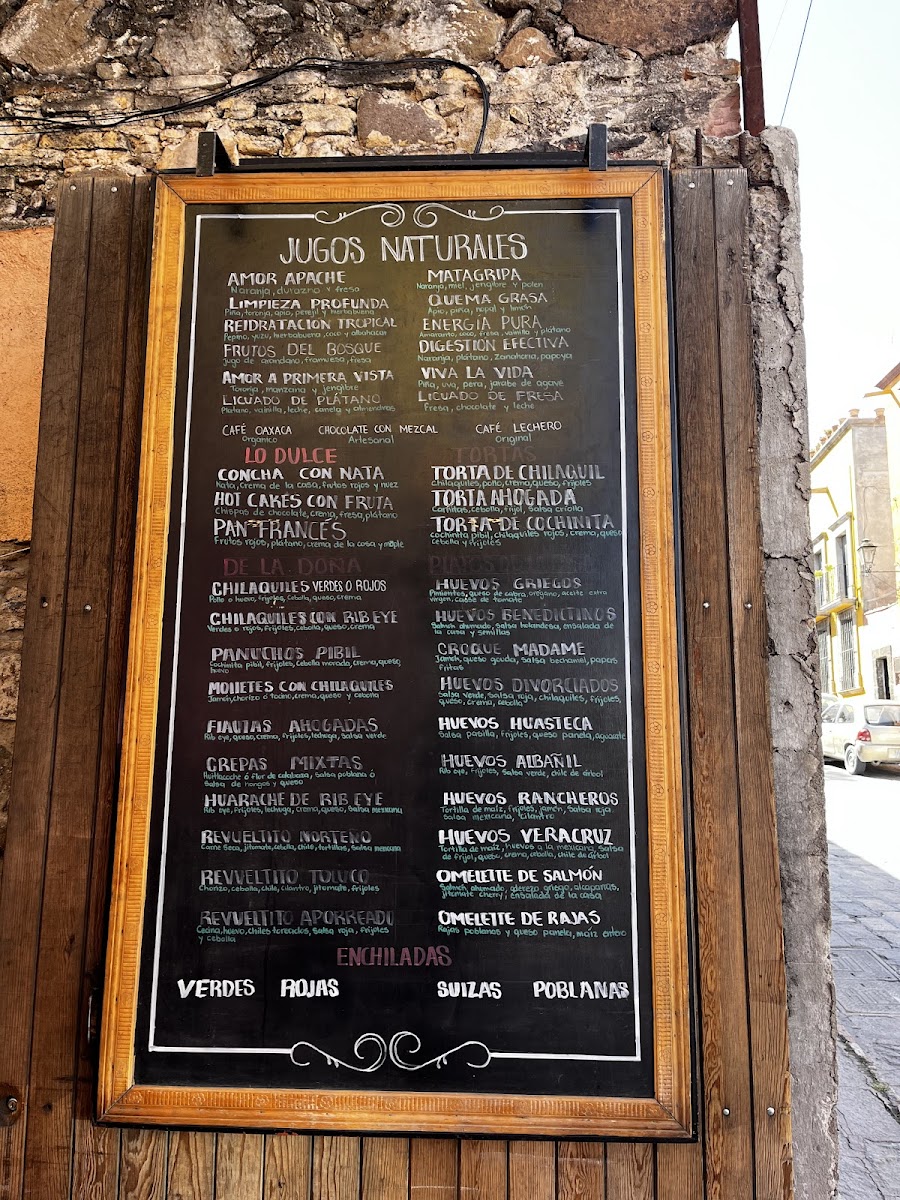 JUGOS NATURALES
AMOR APACHE
Naranja, durazno y fresa
LIMPIEZA PROFUNDA
Piña, toronja, apio, perejil y herbabuena
REIDRATACION TROPICAL
Pepino, yuzu, hierbabuena, coco y albahacar
FRUTOS DEL BOSQUE
jugo de arandano, framuesa, fresa
AMOR A PRIMERA VISTA
Toronja, manzana y jengibre
LICUADO DE PLÁTANO
Platano, vainilla, leche, canela y almendras
MATAGRIPA
Naranja, miel, jengibre y polen
QUEMA GRASA
Apio, piña, nopal y limón
ENERGIA PURA
Amaranto, coco, fresa, vainilla y plátano
DIGESTION EFECTIVA
Naranja, plátano, zanahoria, papaya
VIVA LA VIDA
Piña, uva, pera, jarabe de agave
LICUADO DE FRESA
Fresa, chocolate y leche
CAFÉ OAXACA
Organico
CHOCOLATE CON MEZCAL
Artesanal
CAFÉ LECHERO
Original
LO DULCE
CONCHA CON NATA
Nata, crema de la casa, frutos rojos y nuez
HOT CAKES CON FRUTA
Chispas de chocolate, crema, fresa, plátano
PAN FRANCÉS
Frutos rojos, plátano, crema de la casa y maple
TORTAS
TORTA DE CHILAQUIL
Chilaquiles, pollo, crema, queso, frijoles
TORTA AHOGADA
Carnitas, cebolla, frijol, salsa criolla
TORTA DE COCHINITA
cochinita pibil, chilaquiles rojos, crema, queso
cebolla y frijoles
DE LA DOÑA
CHILAQUILES VERDES O ROJOS
Pollo o huevo, frijoles, cebolla, queso, crema
CHILAQUILES CON RIB EYE
Verdes o rojos, frijoles, cebolla, queso, crema
PANUCHOS PIBIL
Cochinita pibil, frijoles, cebolla morada, crema, queso,
huevo
MOLLETES CON CHILAQUILES
Jamón, chorizo o tocino, crema, queso y cebolla
FLAUTAS AHOGADAS
Rib eye, queso, crema, frijoles, lechuga, salsa verde
CREPAS MIXTAS
Huitlacoche ó flor de calabaza, salsa poblana ó
salsa de hongos y queso
HUARACHE DE RIB EYE
Rib eye, frijoles, lechuga, crema, queso, salsa mexicana
REVUELTITO NORTEÑO
Carne seca, jitomate, cebolla, chile, tortillas, salsa mexicana
REVUELTITO TOLUCO
Chorizo, cebolla, chile, cilantro, jitomate, frijoles
REVUELTITO APORREADO
Cecina, huevo, chiles toreados, salsa roja, frijoles
y cebolla
HUEVOS GRIEGOS
Pimientos, queso de cabra, orégano, aceite extra
virgen, casse de tomate
HUEVOS BENEDICTINOS
Salmón ahumado, salsa holandesa, ensalada de
la casa y semillas
CROQUE MADAME
Jamón, queso gouda, salsa bechamel, papas
fritas
HUEVOS DIVORCIADOS
Salsa verde, salsa roja, chilaquiles, frijoles,
queso, crema, cebolla
HUEVOS HUASTECA
Salsa pasilla, frijoles, queso panela, aguacate
HUEVOS ALBAÑIL
Rib eye, frijoles, salsa verde, chile de árbol
HUEVOS RANCHEROS
Tortilla de maíz, frijoles, jamón, salsa roja
salsa mexicana, cilantro
HUEVOS VERACRUZ
Tortilla de maíz, huevos a la mexicana, salsa
de frijol, queso, crema, cebolla, chile de árbol
OMELETTE DE SALMÓN
Salmón ahumado, aderezo griego, alcaparras,
jitomate cherry, ensalada de la casa
OMELETTE DE RAJAS
Rajas poblanas y queso panela, maíz entero
ENCHILADAS
VERDES ROJAS SUIZAS POBLANAS